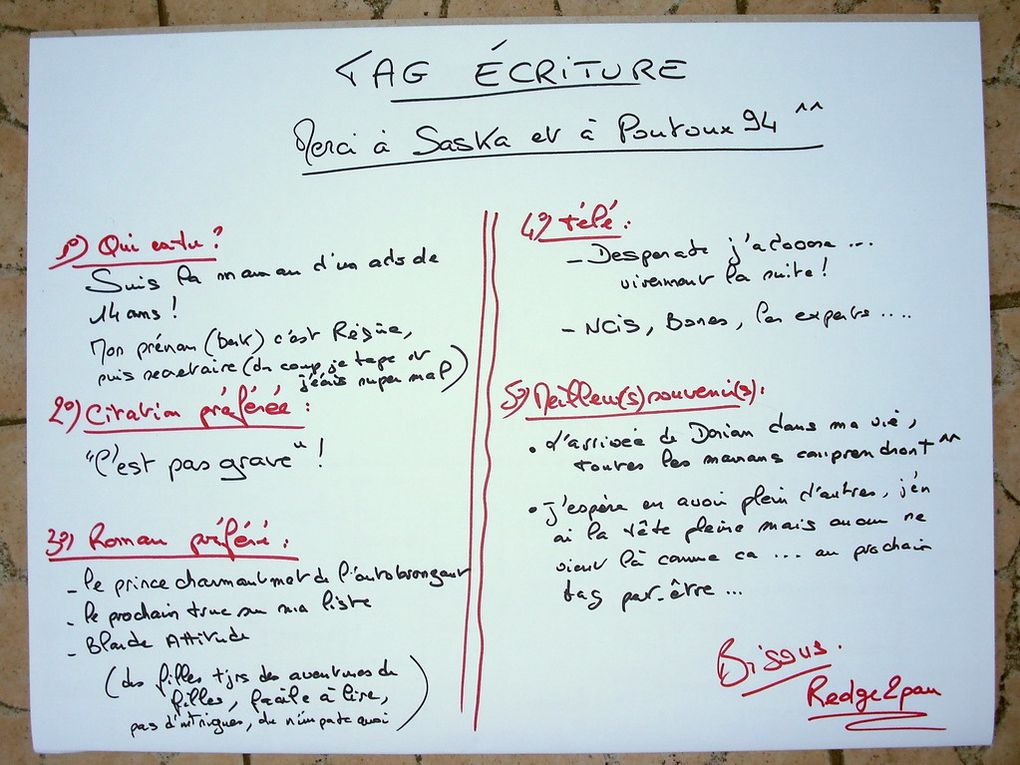 TAG ÉCRITURE
Merci à Saska et à Poutoux 94 ^^
1°) Qui es-tu ?
Suis la maman d'un ados de
14 ans !
Mon prénom (beuk) c'est Régine,
suis secretaire (du coup, je tape et
j'écris super mal)
2°) Citation préférée :
"C'est pas grave" !
3°) Roman préféré :
- le prince charmant met de l'autobronzant
- le prochain truc sur ma liste
- Blonde Attitude
(des filles tjrs des aventures de
filles, facile à lire,
pas d'intrigues, du n'importe quoi)
4°) télé :
- Desperate j'adoooore ...
vivement la suite !
- NCIS, Bones, les experts ....
5°) Meilleur(s) souvenir(s) :
• L'arrivée de Dorian dans ma vie,
toutes les mamans comprendront ^^
• j'espère en avoir plein d'autres, j'en
ai la tête pleine mais aucun ne
vient là comme ça ... au prochain
tag peut-être ...
Bisous.
Redge2pau